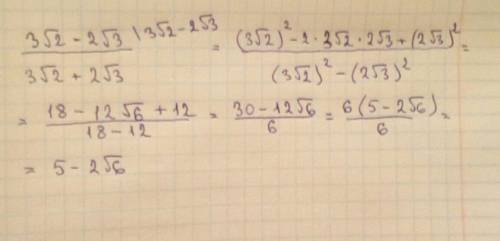 (3√2 - 2√3) / (3√2 + 2√3) \ 3√2 - 2√3 = ((3√2)² - 2 · 3√2 · 2√3 + (2√3)²) / ((3√2)² - (2√3)²) =
= (18 - 12√6 + 12) / (18 - 12) = (30 - 12√6) / 6 = 6(5 - 2√6) / 6 =
= 5 - 2√6